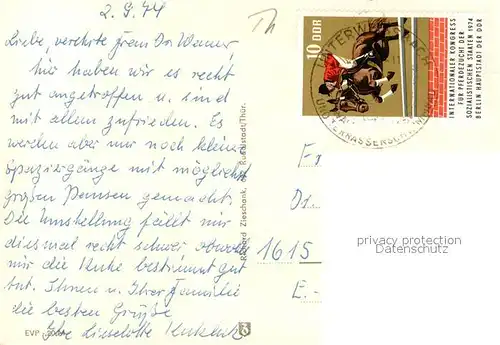 2. 9. 74
Th
Liebe, verehrte Frau Dr. Wanner,
hier haben wir es recht
gut angetroffen u. sind
mit allem zufrieden. Es
werden aber nur noch kleine
Spaziergänge mit möglichst
großen Pausen gemacht.
Die Umstellung fällt mir
diesmal recht schwer obwohl
mir die Ruhe bestimmt gut
tut. Ihnen u. Ihrer Familie
die besten Grüße
Ihre Liselotte
EVP
Richard Zieschank, Rudolstadt/Thür.
10 DDR
INTERNATIONALER KONGRESS
FÜR PFERDEZUCHT DER
SOZIALISTISCHEN STAATEN 1974
BERLIN HAUPTSTADT DER DDR
UNTERWEISSBACH
Dr.
1615
E.-
privacy protection
Datenschutz